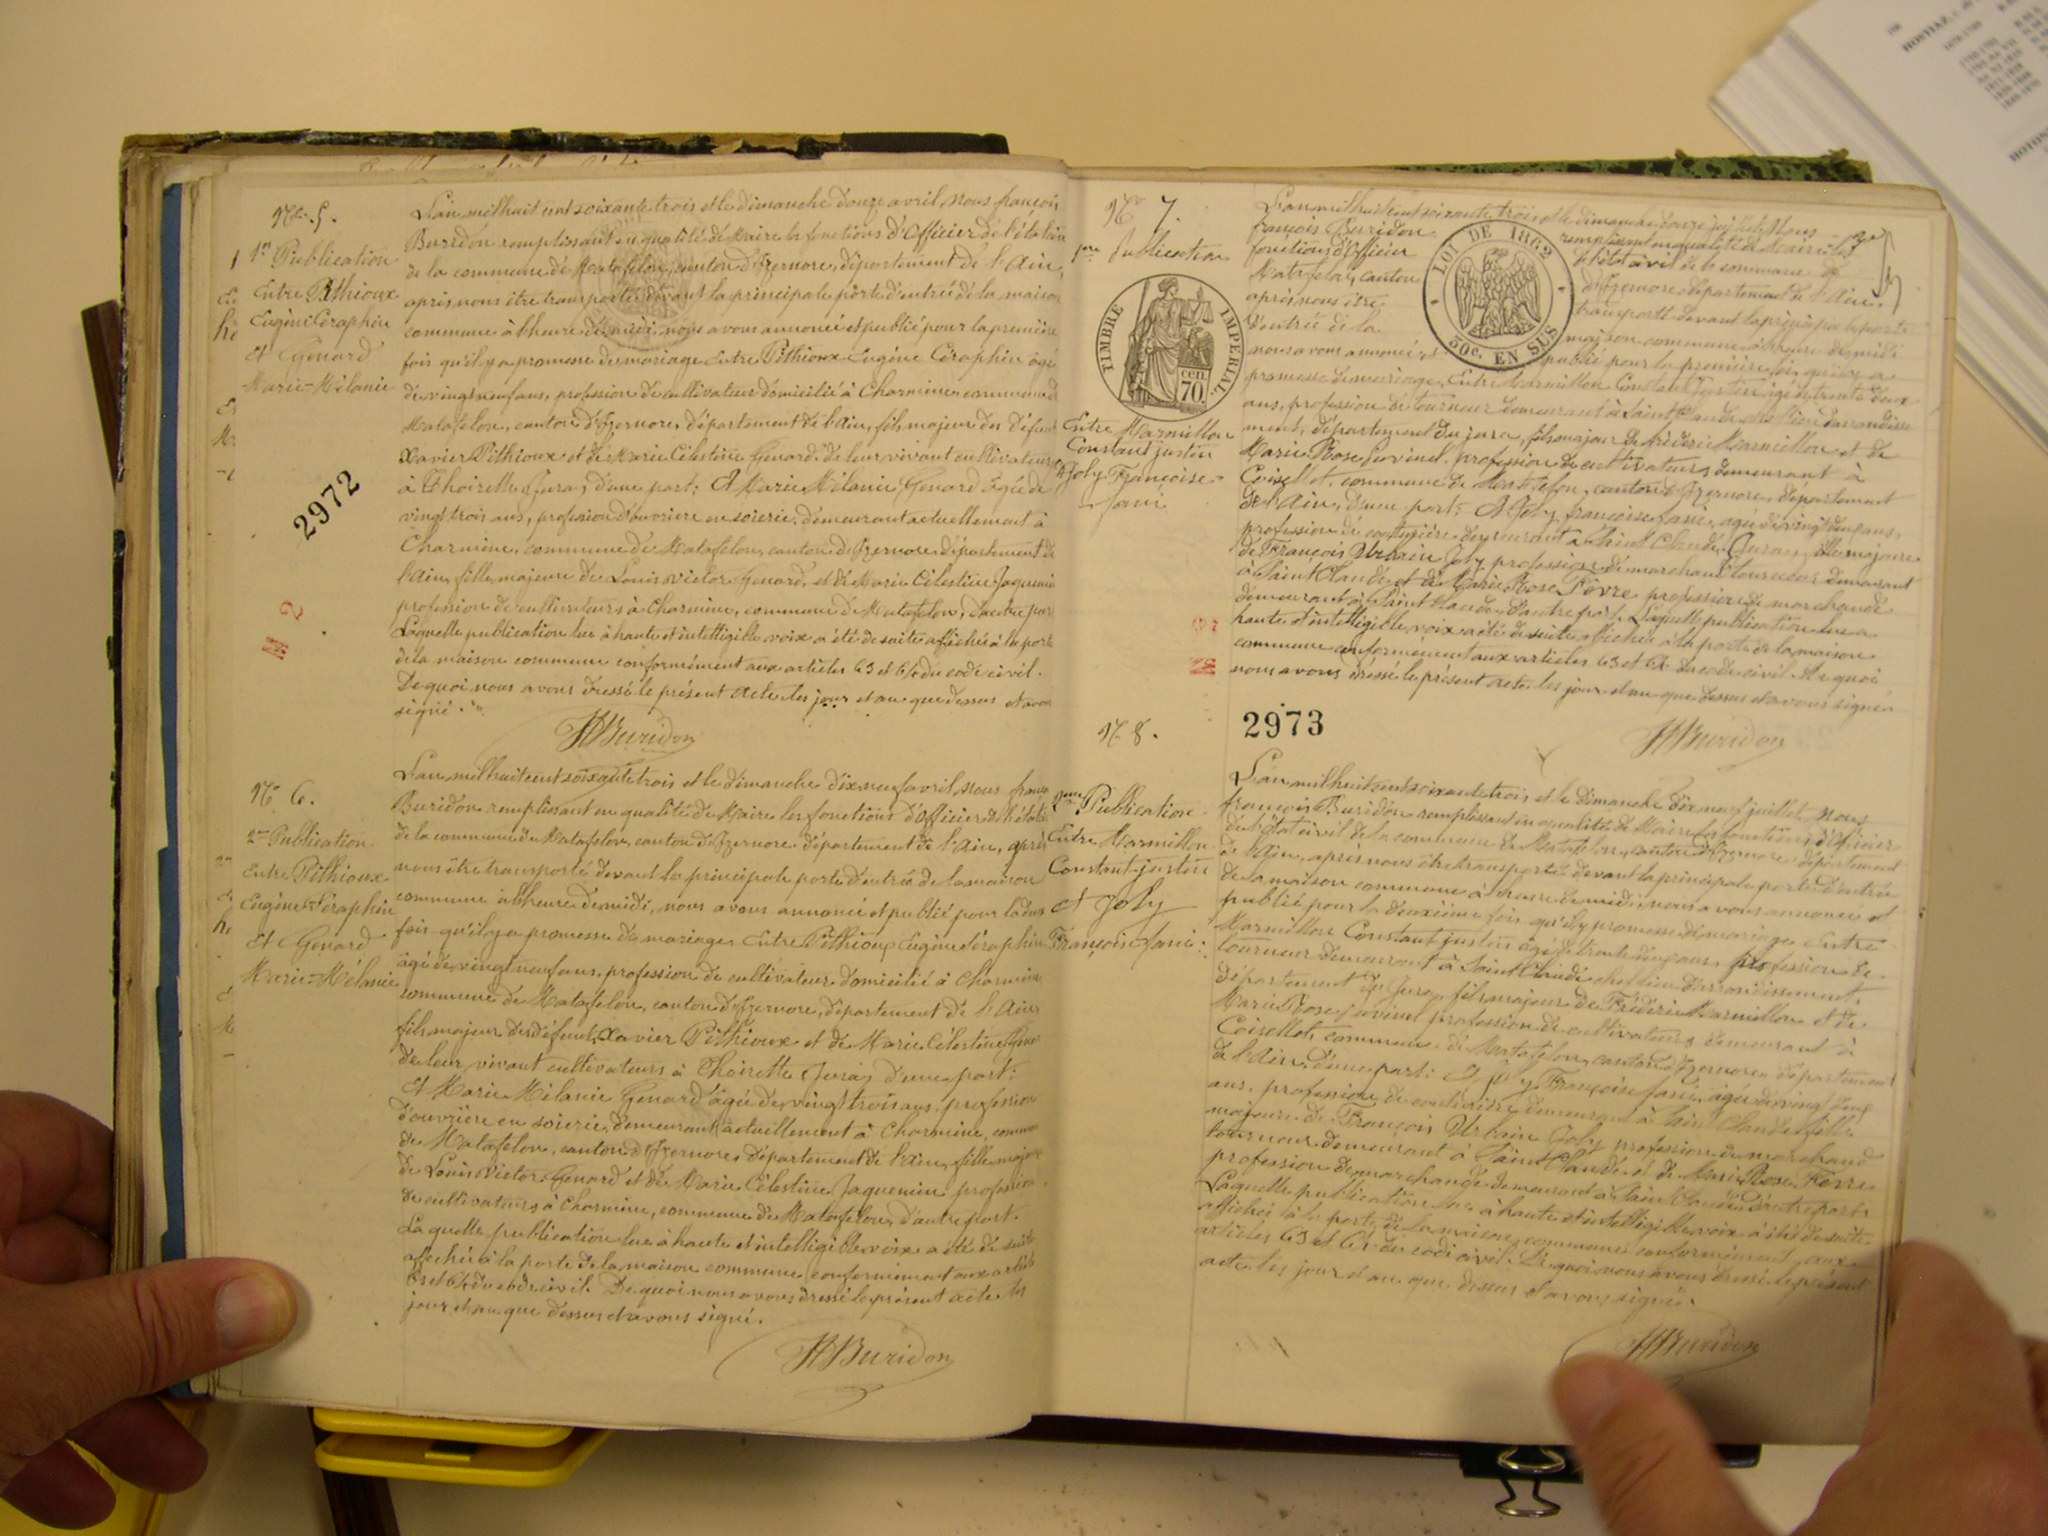 No 5.
1re Publication
Entre Pithioux
Eugène Céraphin
Et Genard
Marie-Mélanie
2972
M 2
L'an mil huit cent soixante trois et le dimanche douze avril, Nous françois
Buridon remplissant en qualité de Maire les fonctions d'Officier de l'état civil
de la commune de Matafelon, canton d'Izernore, département de l'Ain,
après nous être transporté devant la principale porte d'entrée de la maison
commune à l'heure de midi, nous avons annoncé et publié pour la première
fois qu'il y a promesse de mariage Entre Pithioux Eugène Céraphin âgé
de vingt neuf ans, profession de cultivateur domicilié à Charmine commune de
Matafelon, canton d'Izernore, département de l'Ain, fils majeur des défunts
Xavier Pithioux et de Marie Célestine Genard de leur vivant cultivateurs
à Thoirette (Jura) d'une part; Et Marie Mélanie Genard âgée de
vingt trois ans, profession d'ouvrière en soierie, demeurant actuellement à
Charmine, commune de Matafelon, canton d'Izernore département de
l'Ain, fille majeure de Louis Victor Genard, et de Marie Célestine Jaquemin
profession de cultivateurs à Charmine, commune de Matafelon, d'autre part
Laquelle publication lue à haute et intelligible voix a été de suite affichée à la porte
de la maison commune conformément aux articles 63 et 64 du code civil.
De quoi nous avons dressé le présent acte les jour et an que dessus et avons
signé.
Buridon
No 6.
2me Publication
Entre Pithioux
Eugène Séraphin
Et Genard
Marie-Mélanie
L'an mil huit cent soixante trois et le dimanche dix neuf avril, Nous françois
Buridon remplissant en qualité de Maire les fonctions d'Officier de l'état
de la commune de Matafelon, canton d'Izernore département de l'Ain, après
nous être transporté devant la principale porte d'entrée de la maison
commune à l'heure de midi, nous avons annoncé et publié pour la deux
fois qu'il y a promesse de mariage Entre Pithioux Eugène Séraphin
âgé de vingt neuf ans, profession de cultivateur domicilié à Charmine
commune de Matafelon, canton d'Izernore, département de l'Ain
fils majeur des défunts Xavier Pithioux et de Marie Célestine Genard
de leur vivant cultivateurs à Thoirette (Jura) d'une part;
Et Marie Mélanie Genard âgée de vingt trois ans, profession
d'ouvrière en soierie, demeurant actuellement à Charmine, commune
de Matafelon, canton d'Izernore, département de l'Ain, fille majeure
de Louis Victor Genard et de Marie Célestine Jaquemin profession
de cultivateurs à Charmine, commune de Matafelon, d'autre part.
Laquelle publication lue à haute et intelligible voix a été de suite
affichée à la porte de la maison commune conformément aux articles
63 et 64 du code civil. De quoi nous avons dressé le présent acte les
jour et an que dessus et avons signé.
Buridon
No 7.
1re Publication
TIMBRE IMPÉRIAL
70 cen.
LOI DE 1862
50c. EN SUS
Entre Marmillon
Constant justin
Et Joly Françoise
fanie
L'an mil huit cent soixante trois et le dimanche douze juillet Nous
françois Buridon remplissant en qualité de Maire les
fonctions d'Officier de l'état civil de la commune de
Matafelon, canton d'Izernore, département de l'Ain,
après nous être transporté devant la principale porte
d'entrée de la maison commune à l'heure de midi
nous avons annoncé et publié pour la première fois qu'il y a
promesse de mariage, Entre Marmillon Constant Justin âgé de trente deux
ans, profession de tourneur demeurant à Saint Claude chef lieu d'arrondisse
ment, département du jura, fils majeur de Frédéric Marmillon et de
Marie Rose Juvinel, profession de cultivateurs demeurant à
Coisellet, commune de Matafelon, canton d'Izernore, département
de l'Ain, d'une part; Et Joly françoise fanie, âgée de vingt deux ans,
profession de couturière demeurant à Saint Claude (Jura), fille majeure
de François Urbain Joly profession de marchand tourneur demeurant
à Saint Claude et de Marie Rose Févre profession de marchande
demeurant à Saint Claude, d'autre part. Laquelle publication lue a
haute et intelligible voix a été de suite affichée à la porte de la maison
commune conformément aux articles 63 et 64 du code civil. De quoi
nous avons dressé le présent acte les jour et an que dessus et avons signé.
Buridon
2973
No 8.
2me Publication
Entre Marmillon
Constant justin
et Joly
Françoise fanie
L'an mil huit cent soixante trois et le dimanche dix neuf juillet, nous
françois Buridon remplissant en qualité de Maire les fonctions d'Officier
de l'état civil de la commune de Matafelon, canton d'Izernore département
de l'Ain, après nous être transporté devant la principale porte d'entrée
de la maison commune à l'heure de midi, nous avons annoncé et
publié pour la deuxième fois qu'il y promesse de mariage Entre
Marmillon Constant justin âgé de trente deux ans, profession de
tourneur demeurant à Saint Claude chef lieu d'arrondissement,
département du Jura, fils majeur de Frédéric Marmillon et de
Marie Rose Juvinel profession de cultivateurs demeurant à
Coisellet, commune de Matafelon, canton d'Izernore, département
de l'Ain, d'une part; Et Joly Françoise fanie, âgée de vingt deux
ans, profession de couturière demeurant à Saint Claude fille
majeure de François Urbain Joly profession de marchand
tourneur demeurant à Saint Claude et de Marie Rose Fevre
profession de marchande demeurant à Saint Claude d'autre part.
Laquelle publication lue à haute et intelligible voix a été de suite
affichée à la porte de la maison commune conformément aux
articles 63 et 64 du code civil. De quoi nous avons dressé le présent
acte les jour et an que dessus et avons signé.
Buridon